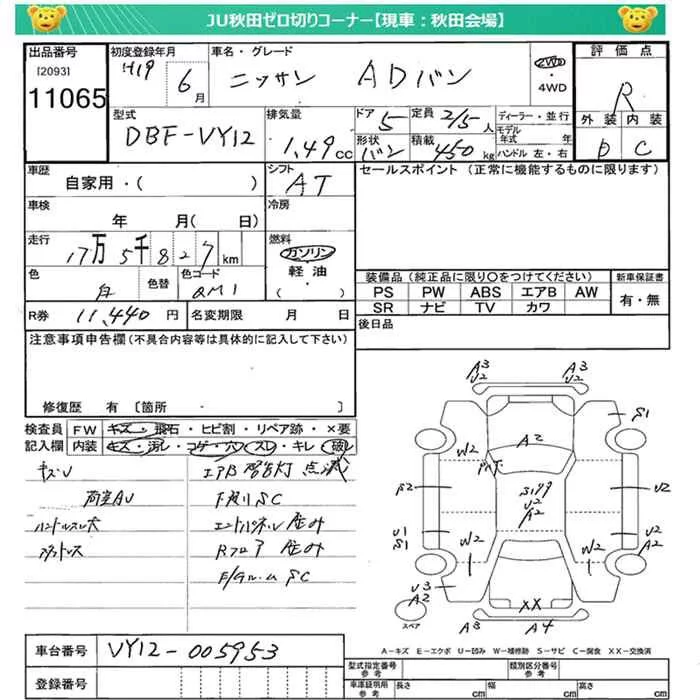 JU秋田ゼロ切りコーナー【現車：秋田会場】
出品番号 初度登録年月 車名・グレード 評価点
[2093] H19 6月 ニッサン ADバン 2WD・4WD R
11065
型式 排気量 ドア 定員 ディーラー・並行 外装 内装
DBF-VY12 1.49cc 5 2/5人 モデル年式 年 D C
形状 積載 ハンドル 左・右
バン 450kg
車歴 シフト セールスポイント（正常に機能するものに限ります）
自家用・（ ） AT
車検 冷房
年 月(日)
走行 燃料
17万5千827km ガソリン 軽油 ( )
色 色替 色コード 装備品（純正品に限り○をつけてください） 新車保証書
白 QM1 PS PW ABS エアB AW 有・無
SR ナビ TV カワ
R券 11,440円 名変期限 月 日 後日品
注意事項申告欄（不具合内容等は具体的に記入して下さい）
修復歴 有 〔箇所 ・ 〕
検査員 FW キズ・飛石・ヒビ割・リペア跡・×要
記入欄 内装 キズ・汚レ・コゲ・穴・スレ・キレ・破レ
キズU エアB警告灯点滅
荷室AU SC
ハンドルスレ大
SC
A3 U2 A3 U2
S1
W2 A2
S2 U2 A2 U2
U1 S1 W2 W2 U2 A2
U3 A2
スペア XX
A3 A4
A－キズ E－エクボ U－凹み W－補修跡 S－サビ C－腐食 XX－交換済
車台番号 VY12-005953
登録番号
型式指定番号 参考 類別区分番号 参考
車庫証明用 参考 長さ cm 幅 cm 高さ cm